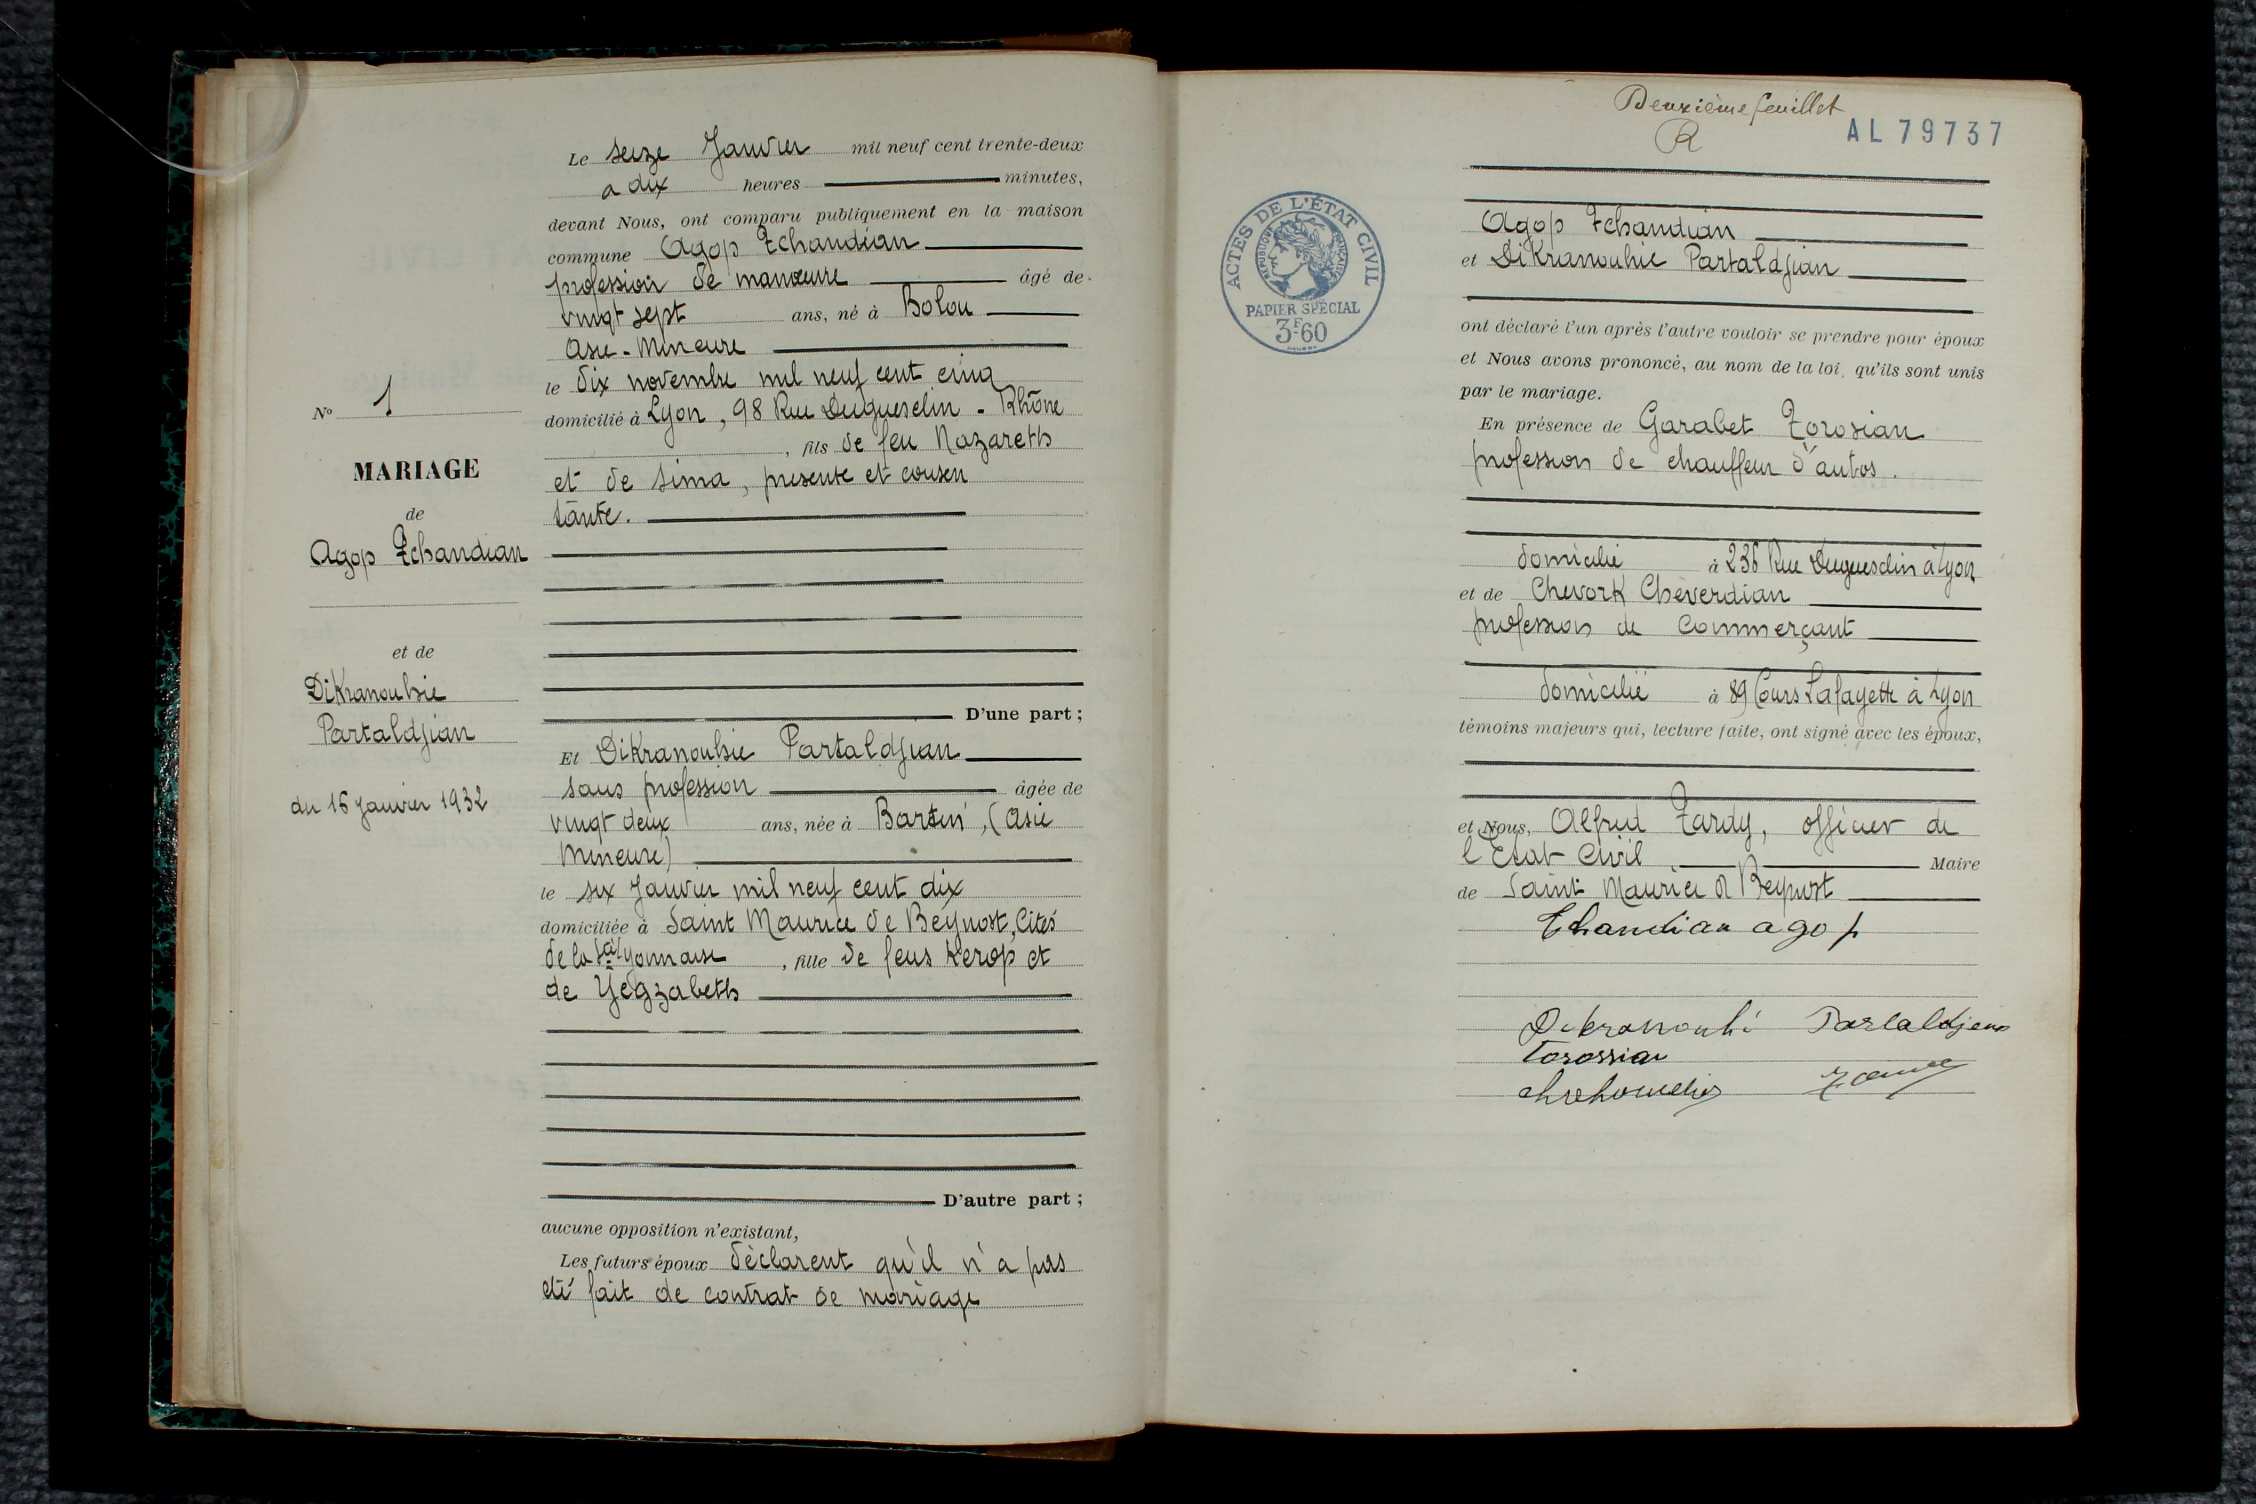 Le seize Janvier mil neuf cent trente-deux
a dix heures minutes,
devant Nous, ont comparu publiquement en la maison
commune Agop Tchandian
profession de manœuvre âgé de
vingt sept ans, né à Bolou
Asie-Mineure
le dix novembre mil neuf cent cinq
domicilié à Lyon, 98 Rue Duguesclin - Rhône
, fils de feu Nazareth
et de Sima, présente et consen
tante.
D'une part ;
Et Dikranouhie Partaldjian
sans profession âgée de
vingt deux ans, née à Bartin, (Asie
Mineure)
le six Janvier mil neuf cent dix
domiciliée à Saint Maurice de Beynost, Cités
de la Sté Lyonnaise , fille de feus Kérop et
de Yegzabeth
D'autre part ;
aucune opposition n'existant,
Les futurs époux déclarent qu'il n'a pas
été fait de contrat de mariage
No 1
MARIAGE
de
Agop Tchandian
et de
Dikranouhie
Partaldjian
du 16 Janvier 1932
Deuxième feuillet
AL 79737
ACTES DE L'ÉTAT CIVIL
RÉPUBLIQUE FRANÇAISE
PAPIER SPÉCIAL
3F60
Agop Tchandian
et Dikranouhie Partaldjian
ont déclaré l'un après l'autre vouloir se prendre pour époux
et Nous avons prononcé, au nom de la loi, qu'ils sont unis
par le mariage.
En présence de Garabet Torosian
profession de chauffeur d'autos.
domicilié à 236 Rue Duguesclin à Lyon
et de Chevork Cheverdian
profession de Commerçant
domicilié à 89 Cours Lafayette à Lyon
témoins majeurs qui, lecture faite, ont signé avec les époux,
et Nous, Alfred Tardy, officier de
l'Etat Civil Maire
de Saint Maurice d Beynost
Tchandian agop
Dikranouhi Partaldjian
Torossian